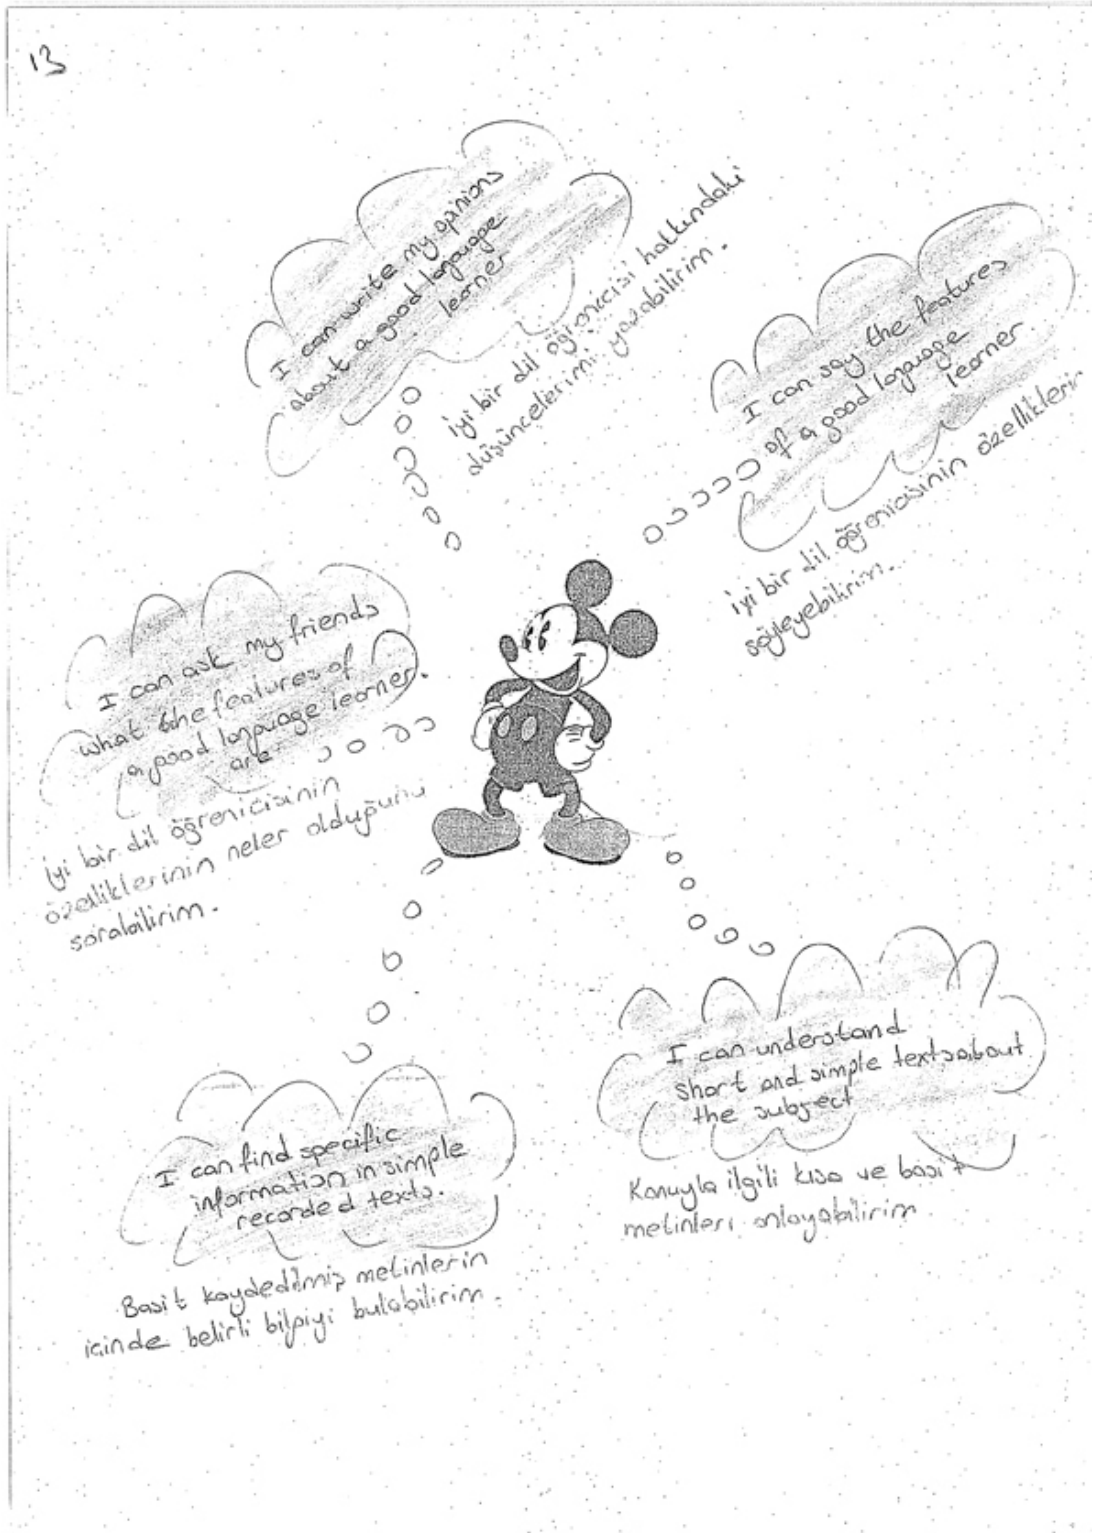 13
I can write my opinions
about a good language
learner
iyi bir dil öğrenicisi hakkındaki
düşüncelerimi yazabilirim.
I can say the features
of a good language
learner.
iyi bir dil öğrenicisinin özelliklerir
söyleyebilirim.
I can ask my friends
what the features of
a good language learner.
are
iyi bir dil öğrenicisinin
özelliklerinin neler olduğunu
sorabilirim.
I can understand
short and simple texts about
the subject
Konuyla ilgili kısa ve basit
metinleri anlayabilirim
I can find specific
information in simple
recorded texts.
Basit kaydedilmiş metinlerin
içinde belirli bilgiyi bulabilirim.